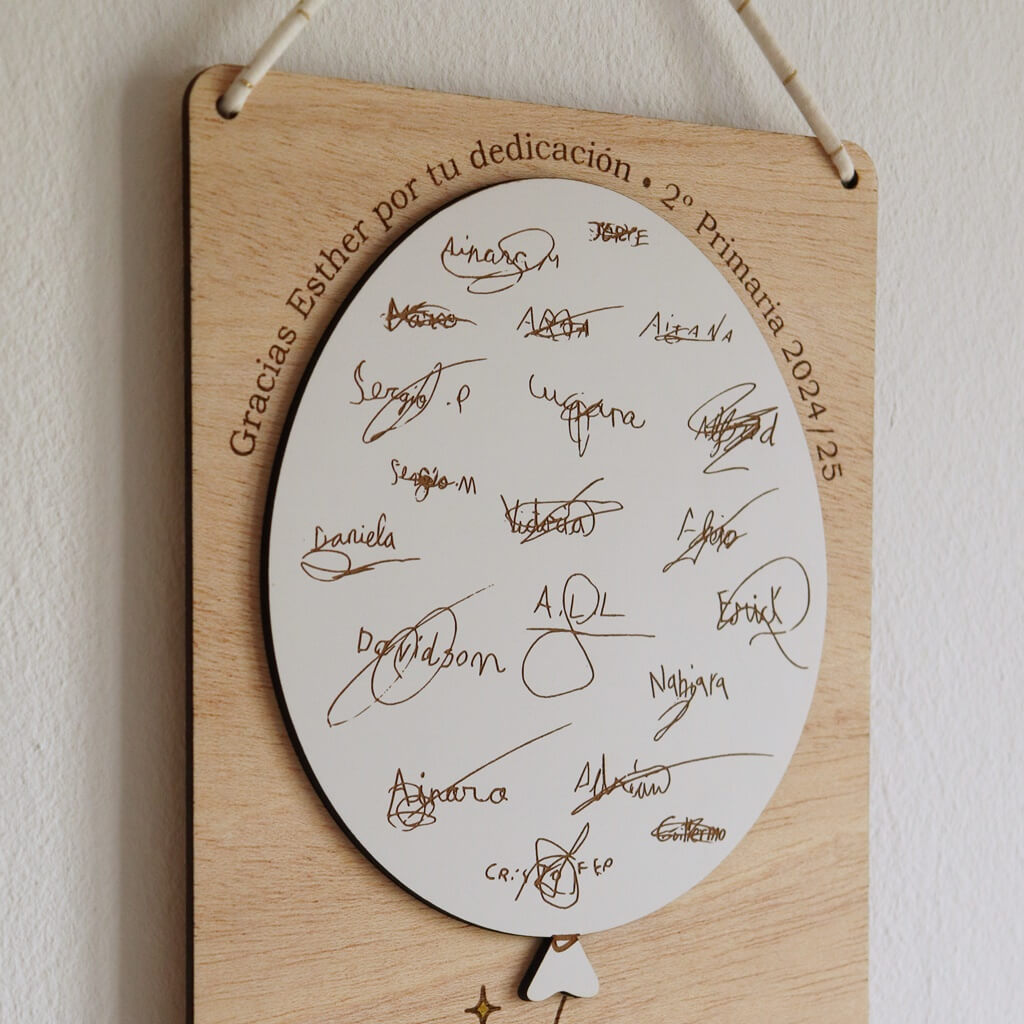 Gracias Esther por tu dedicación • 2º Primaria 2024/25
Ainara M
JORGE
Marco
Aitana
Sergio.P
Sergio.M
Victoria
Daniela
Erick
A.DL
Davidson
Nahiara
Ainara
Adrián
Guillermo
CRISTOFER